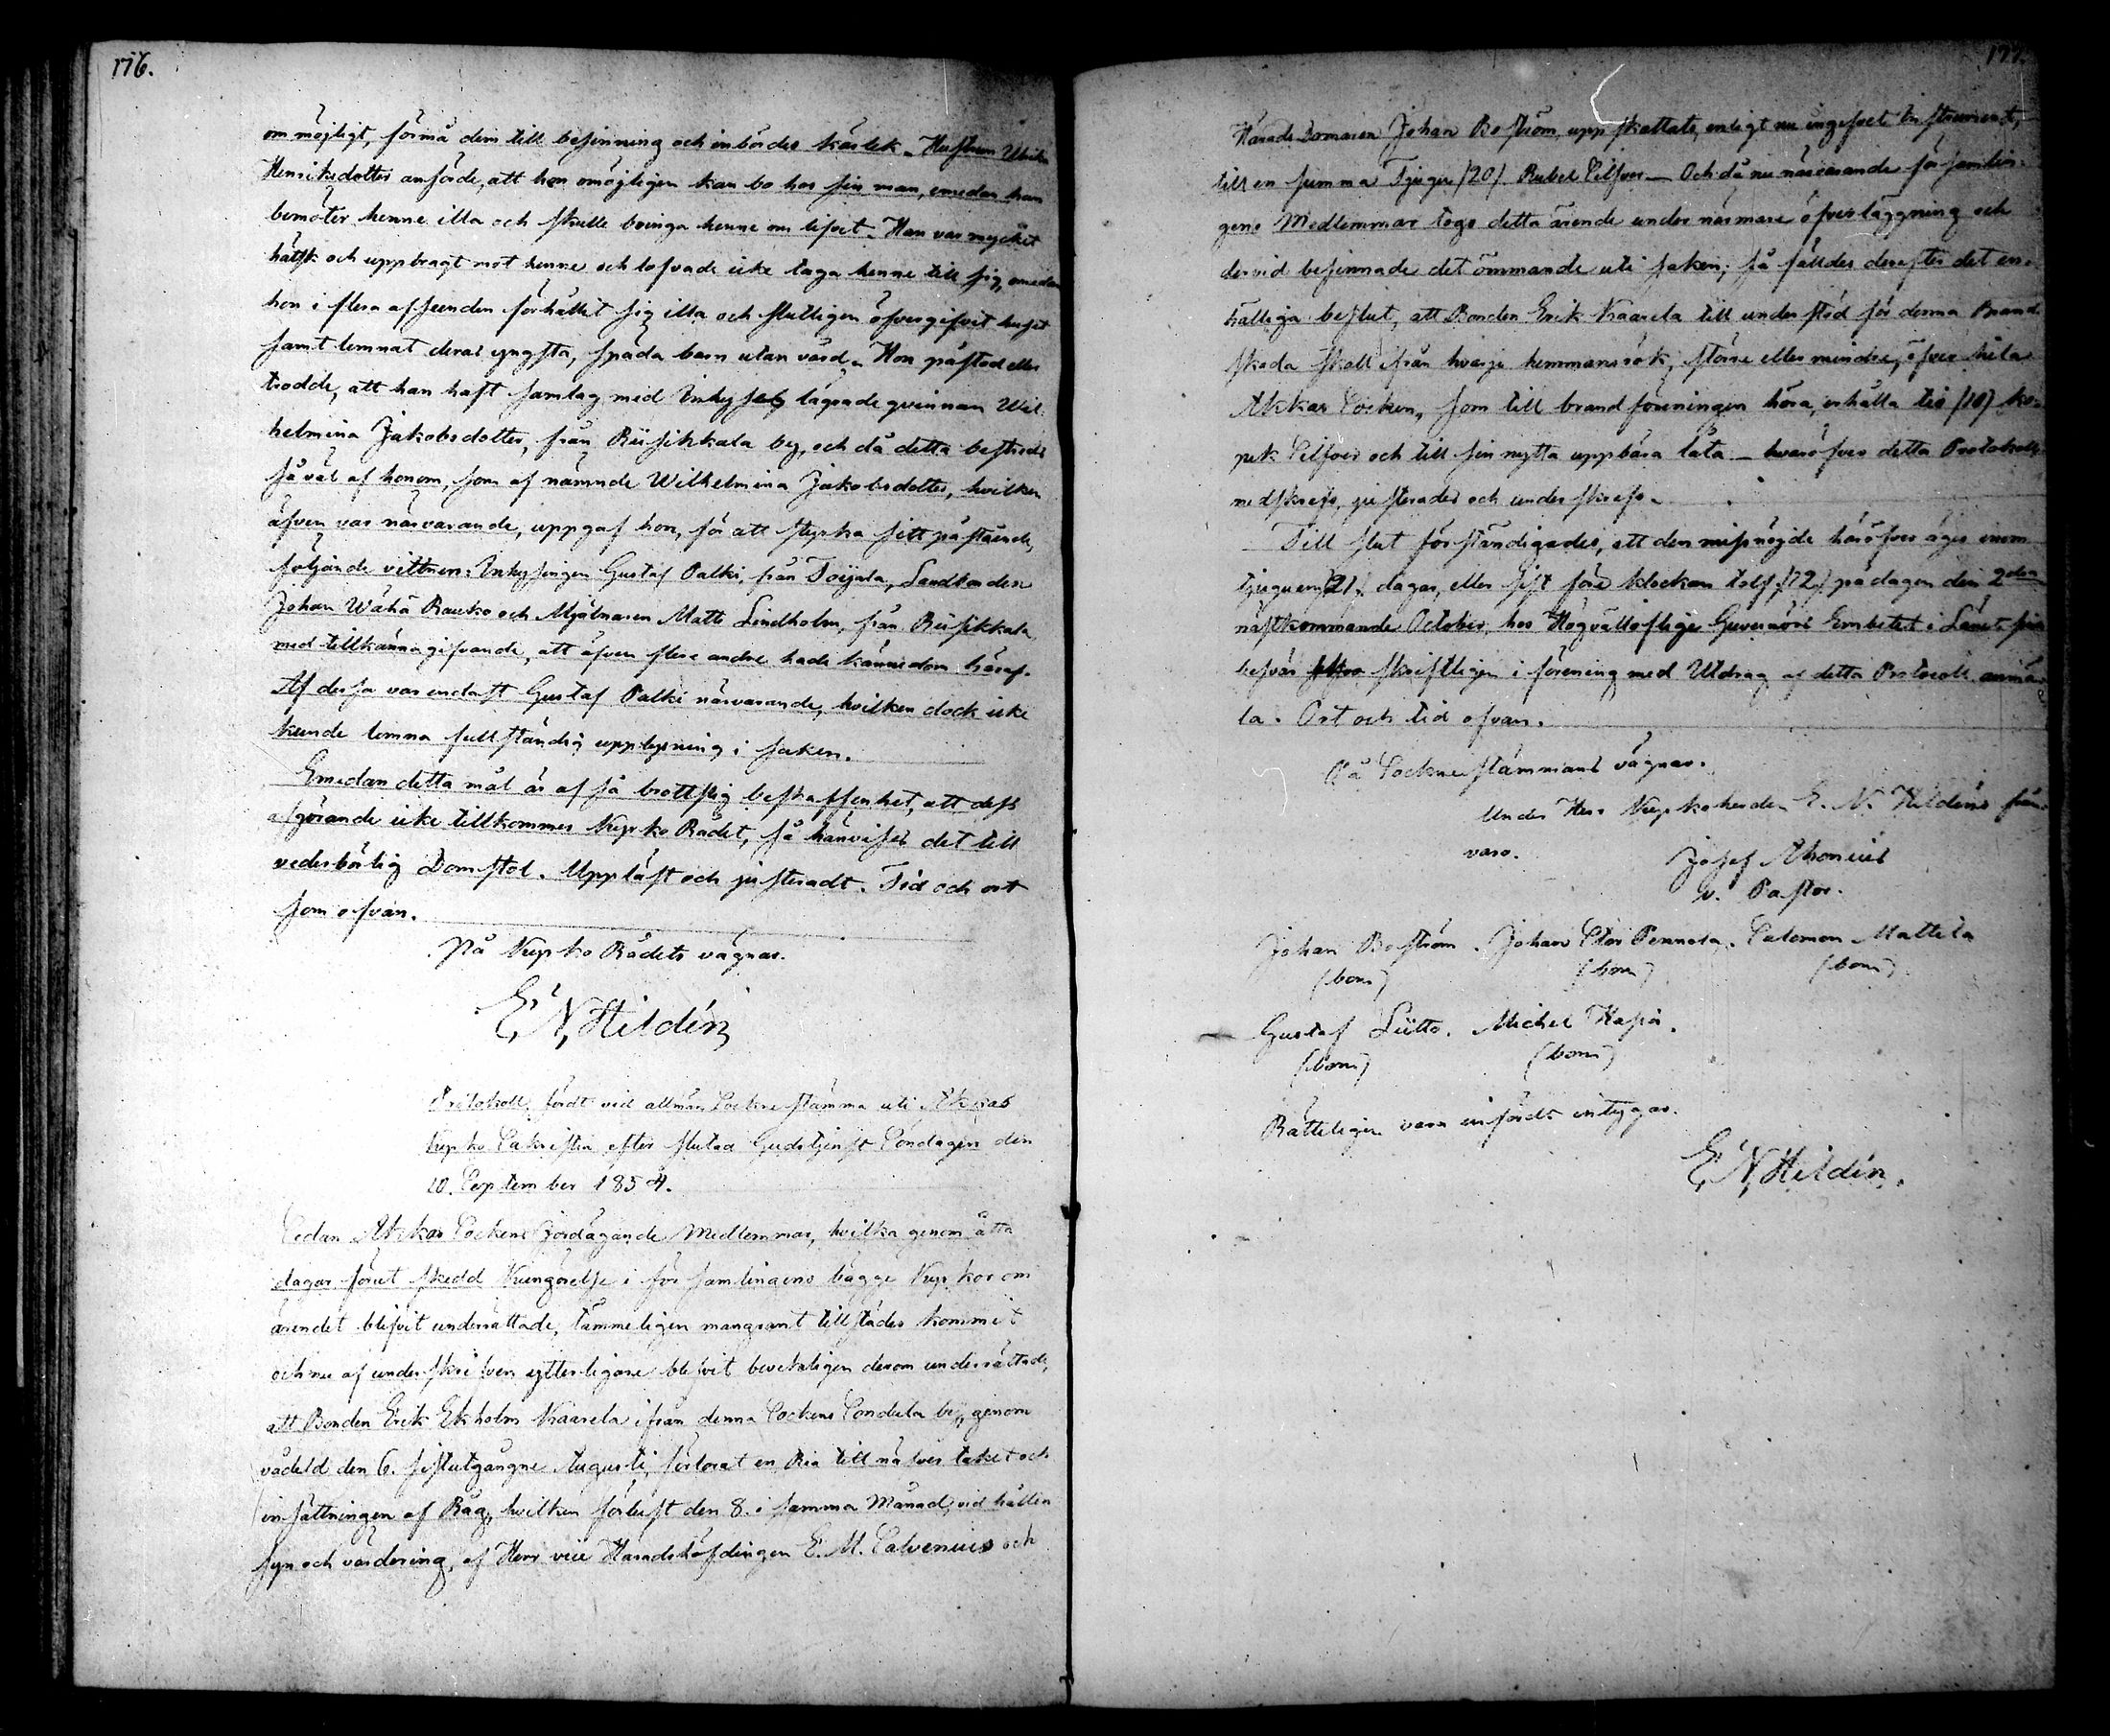 176.
om möjligt, förmå dem till besinning och inbördes kärlek. Hustrun Ulrika
Henriksdotter anförde, att hon omöjligen kan bo hos sin man, emedan han
bemöter henne illa och skulle bringa henne om lifvet. Han var mycket
hätsk och uppbragt mot henne och lofvade icke taga henne till sig, emedan
hon i flera afseenden förhållit sig illa och slutligen öfvergifvit huset
samt lemnat deras yngsta, späda barn utan vård. Hon påstod eller
trodde, att han haft samlag med Inhyses lägrade qvinnan Wil-
helmina Jakobsdotter, från Riisikkala by, och då detta bestreds
så väl af honom, som af nämnde Wilhelmina Jakobsdotter, hvilken
äfven var närvarande, uppgaf hon, för att styrka sitt påstående,
följande vittnen: Inhysingen Gustaf Palki, från Toijala, Landbonden
Johan Wähä Rauko och Mjölnaren Matts Lindholm, från Riisikkala
med tillkännagifvande, att äfven flere andre hade kännedom häraf.
Af dessa var endast Gustaf Palki närvarande, hvilken dock icke
kunde lemna fullständig upplysning i saken.
Emedan detta mål är af så brottslig beskaffenhet, att dess
afgörande icke tillkommer Kyrko Rådet, så hänvises det till
vederbörlig Domstol. Uppläst och justeradt. Tid och ort
som ofvan.
På Kyrko Rådets vägnar.
E. N. Hildén
Protokoll, fördt vid allmän Sockne stämma uti Akkas
Kyrko Sakristia efter slutad Gudstjenst Söndagen den
10. September 1854.
Sedan Akkas Sockens Jordägande Medlemmar, hvilka genom åtta
dagar förut skedd Kungörelse i församlingens bägge Kyrkor om
ärendet blifvit underrättade, tämmeligen mangrant tillstädes kommit
och nu af underskrifven ytterligare blifvit bevekeligen derom underrättade,
att Bonden Erik Ekholm Kaarela ifrån denna Sockens Sondula by, genom
vådeld den 6. sistutgångne Augusti, förlorat en Ria till når öfver taket och
insättningen af Råg, hvilken förlust den 8. i samma Månad, vid hållen
syn och värdering, af Herr vice Häradshöfdingen E. M. Calvenius och
177.
Härads Domaren Johan Boström uppskattats, enligt nu ingifvet Instrument,
till en summa Tjugu /20/ Rubel Silfver — Och då nu närvarande församlin-
gens Medlemmar togo detta ärende under närmare öfverläggning och
dervid besinnade det ömmande uti saken; så fälldes derefter det en-
hälliga beslut, att Bonden Erik Kaarela till understöd för denna Brand
skada skall från hvarje hemmansrök, större eller mindre, öfver hela
Akkas Socken, som till brandföreningen höra, erhålla tio /10/ ko-
pek Silfver och till sin nytta uppbära låta — hvaröfver detta Protokoll
nedskrefs, justerades och underskrefs.
Till slut förständigades, att den missnöjde häröfver äger inom
tjuguen /21/ dagar, eller sist före klockan tolf /12/ på dagen den 2dra
nästkommande October, hos Högvällofliga Guvernörs Embetet i Länet sina
besvär skriftligen i förening med Utdrag af detta Protocoll anmä-
la. Ort och tid ofvan.
På Sockne stämmans vägnar.
Under Herr Kyrkoherden E. N. Hildéns från-
varo.
Josef Ahonius
v. Pastor.
Johan Boström. Johan Clas Pennola. Salomon Mattila
(bom) (bom) (bom)
Gustaf Liitto. Michel Kassi.
(bom) (bom)
Rätteligen vara infördt intygar.
E. N. Hildén.